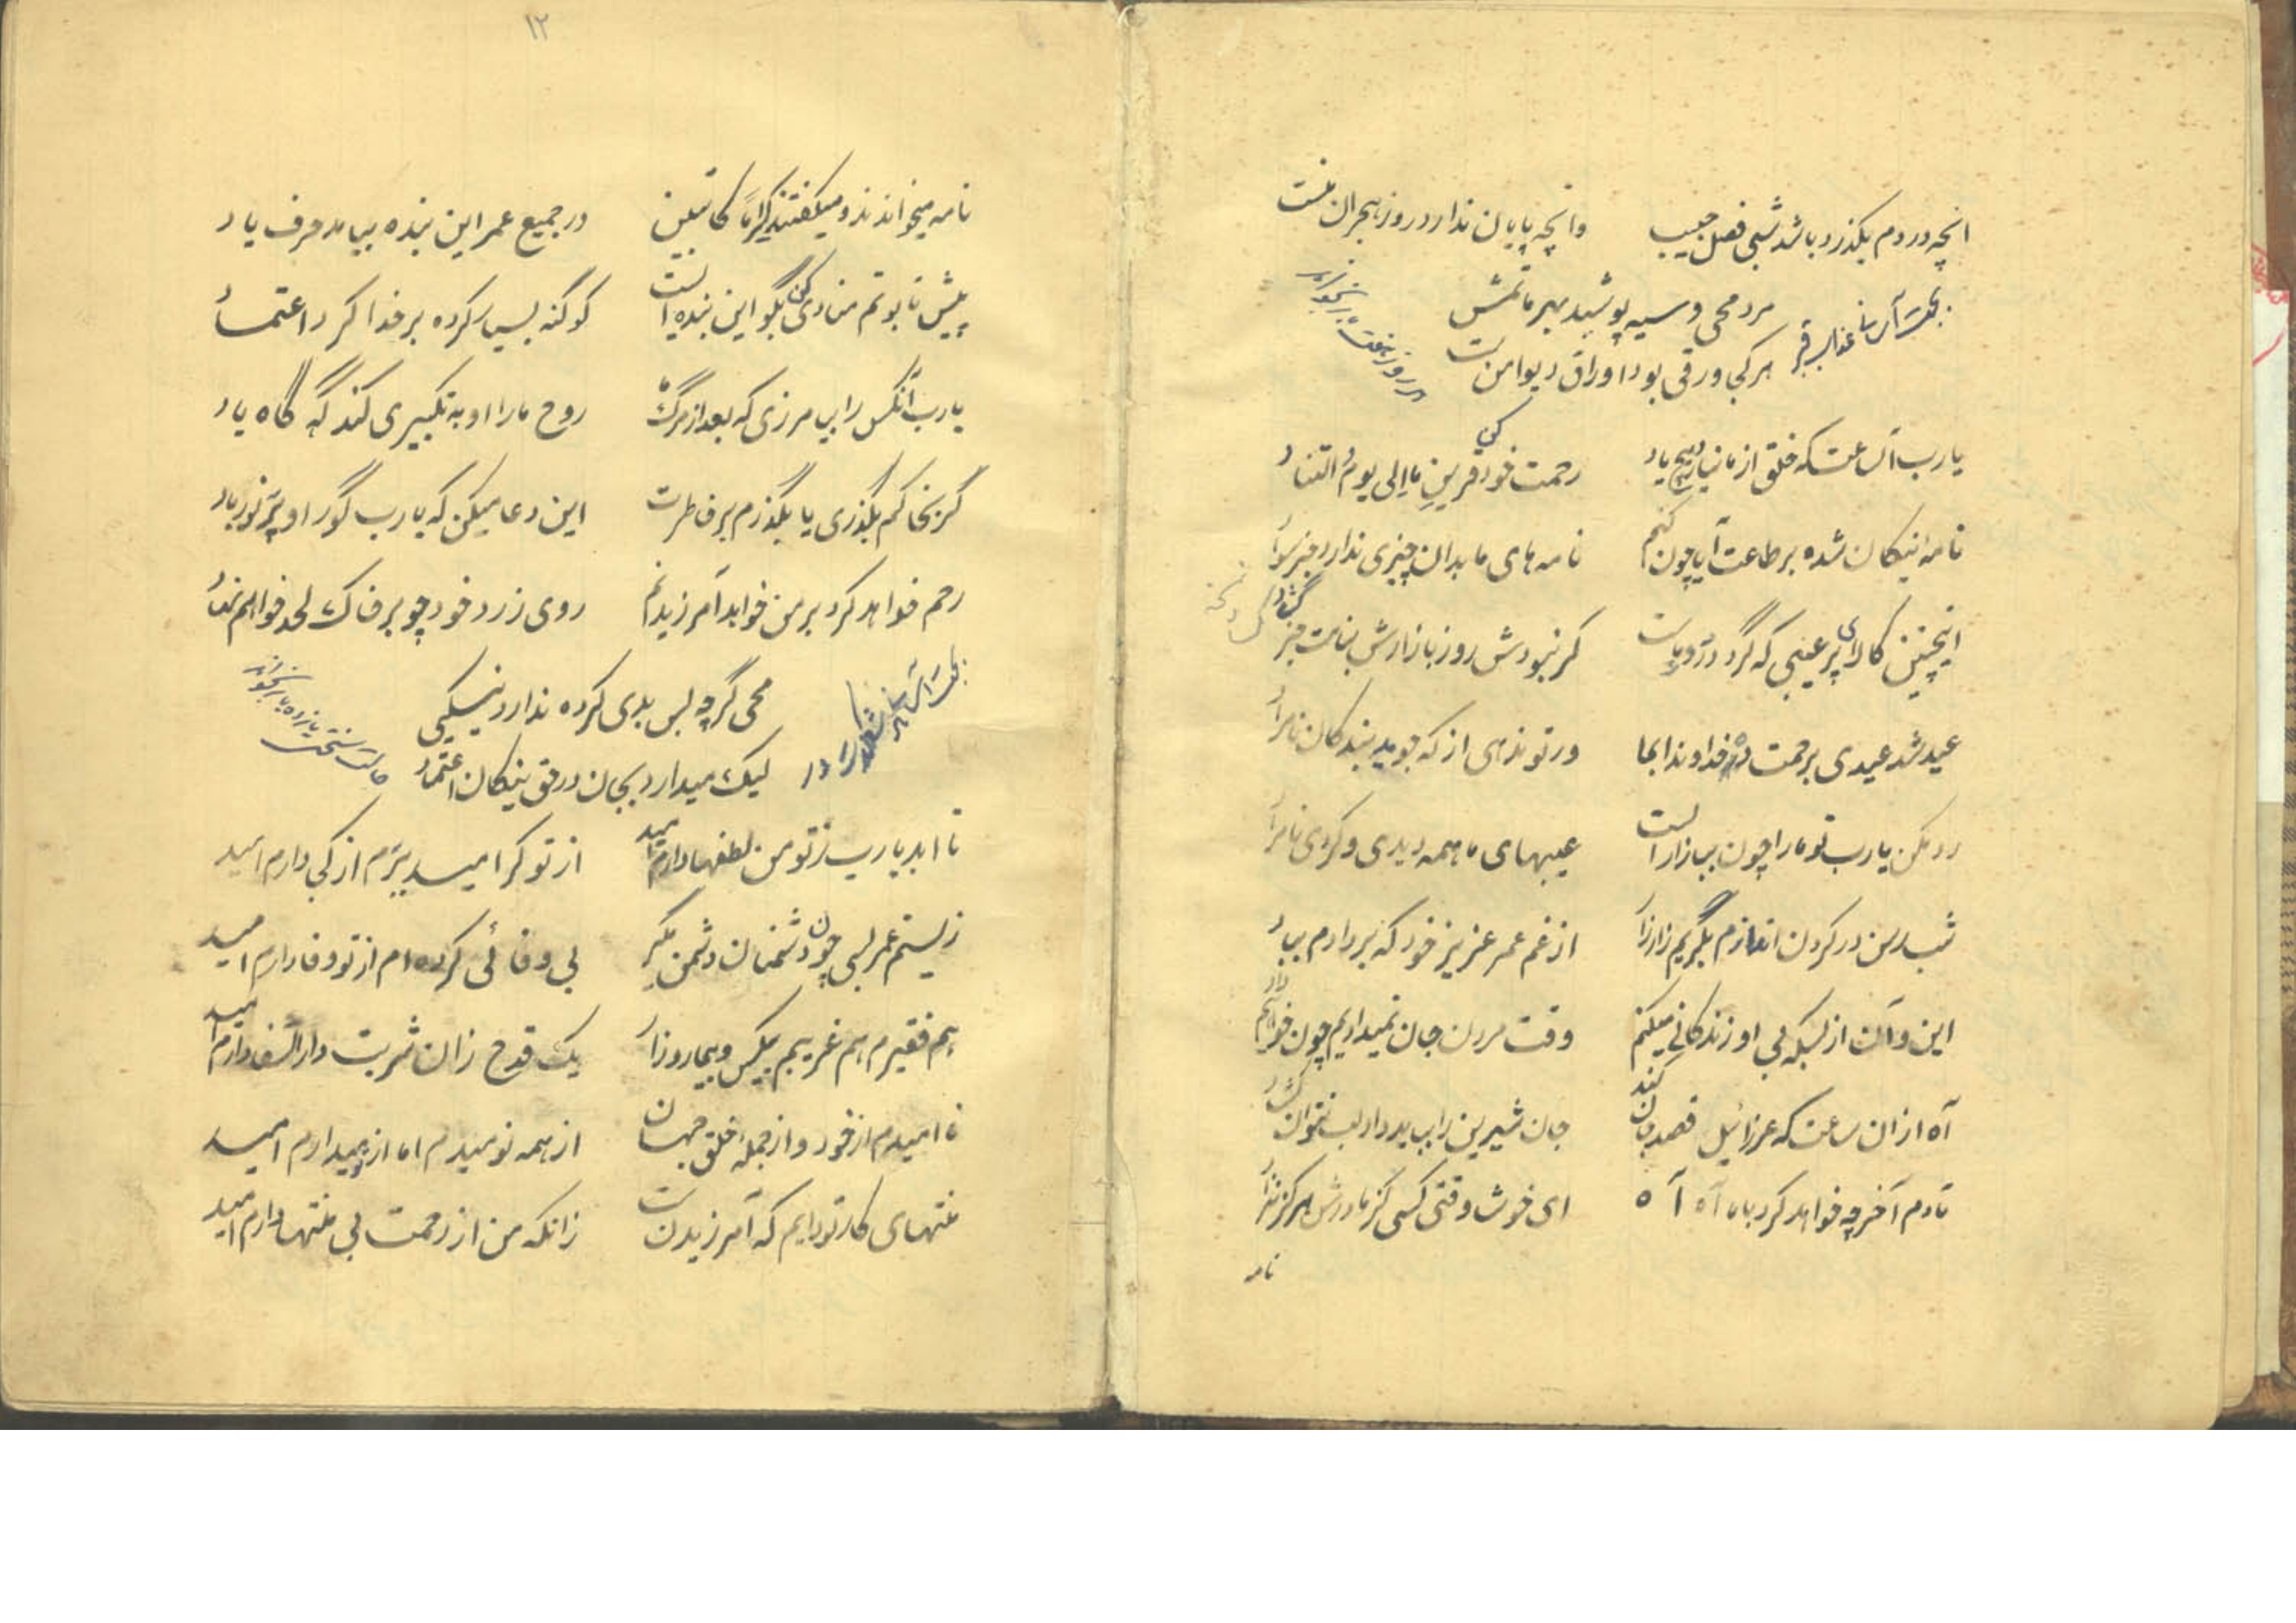 انچه در دم بگذرد باشد شبی فصل حبیب وانچه پایان ندارد روز هجران منست
مرد محی و سیه پوشید بهر ماتمش
بجهت آسانی عذاب قبر
هر کجی ورقی بود اوراق دیوان منست
یارب آن ساعت که خلق از ما نیارد هیچ یاد رحمت خود کن قرین ما الی یوم التناد
نامه نیکان شده بر طاعت آیا چون کنم نامه های ما بدان چیزی ندارد جز سواد
اینچنین کالای پر عیبی که گردد رو بماست گر نبودش روز بازارش بنامت جز کساد
عید شد عیدی برحمت ده خداوندا بما ور تو ندهی از که جوید بندگان نامراد
رد مکن یارب تو ما را چون ببازار الست عیبهای ما همه دیدی و کردی نامراد
شب در کردن اندازم بگریم زار زار از غم عمر عزیز خود که بر دادم بباد
این و آن از بسکه بی او زندگانی میکنم وقت مردن جان نمیدانیم چون خواهیم داد
آه ازان ساعت که عزرائیل قصد جان کند جان شیرین را بباید داد لب نتوان گشاد
تا دم آخر چه خواهد کرد با ما آه آه ای خوش وقتی کسی کز مادرش هرگز نزاد
نامه
۱۲
نامه میخواندند و میگفتند کراما کاتبین در جمیع عمر این بنده بیامد حرف یاد
پیش تابوتم منادی کن بگو این بنده ایست کو گنه بسیار کرده بر خدا کرد اعتماد
یارب آنکس را بیامرزی که بعد از مرگ ما روح ما را او به تکبیری کند گه گاه یاد
گر بخاکم بگذری یا بگذرم بر خاطرت این دعا میکن که یارب گور او پر نور باد
رحم خواهد کرد بر من خواهد آمرزیدنم روی زرد خود چو بر خاک لحد خواهم نهاد
محی گرچه بس بدی کرده ندارد نیکیی
لیک میدارد بجان در حق نیکان اعتماد
تا ابد یارب ز تو من لطفها دارم امید از تو گر امید ببرم از کجی دارم امید
زیستم عمر بسی چون دشمنان دشمن مگیر بی وفائی کرده ام از تو وفا دارم امید
هم فقیرم هم غریبم بیکس و بیمار و زار یک قدح زان شربت دار الشفا دارم امید
نا امیدم از خود و از جمله خلق جهان از همه نومیدم اما از تو میدارم امید
منتهای کار تو دانم که آمرزیدنست زانکه من از رحمت بی منتها دارم امید